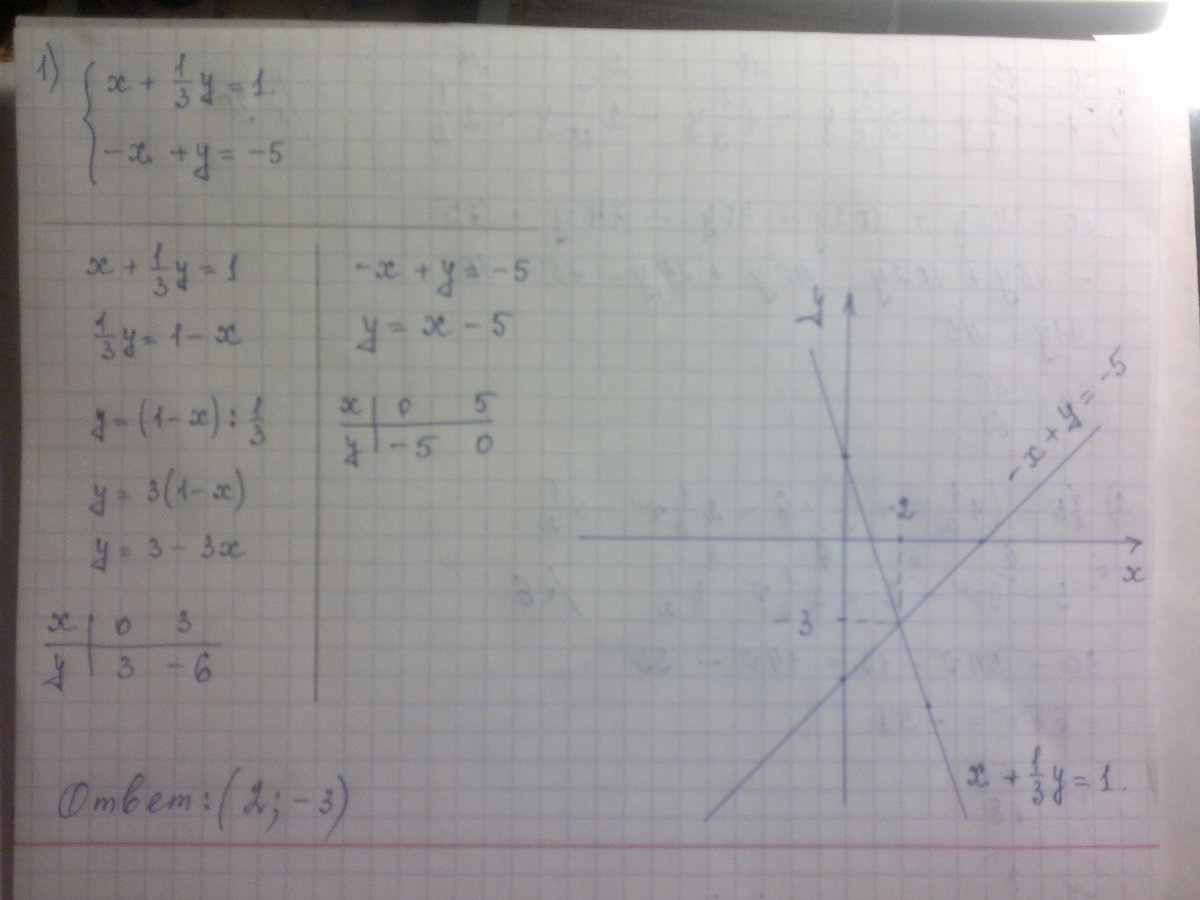 1) { x + 1/3 y = 1.
-x + y = -5
x + 1/3 y = 1
1/3 y = 1 - x
y = (1 - x) : 1/3
y = 3(1 - x)
y = 3 - 3x
x | 0 3
y | 3 -6
-x + y = -5
y = x - 5
x | 0 5
y | -5 0
y
-x + y = -5
2
x
-3
x + 1/3 y = 1.
Ответ: (2; -3)